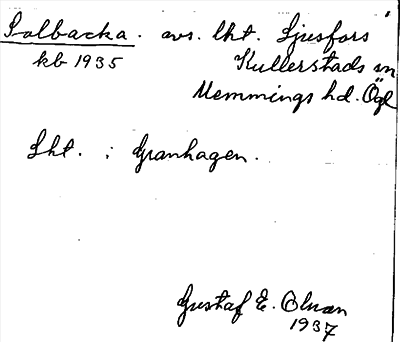 Solbacka. avs. lht. Ljusfors
kb 1935 Kullerstads sn
Memmings hd. Ögl
Lht. i Granhagen.
Gustaf E. Olnæn
1937